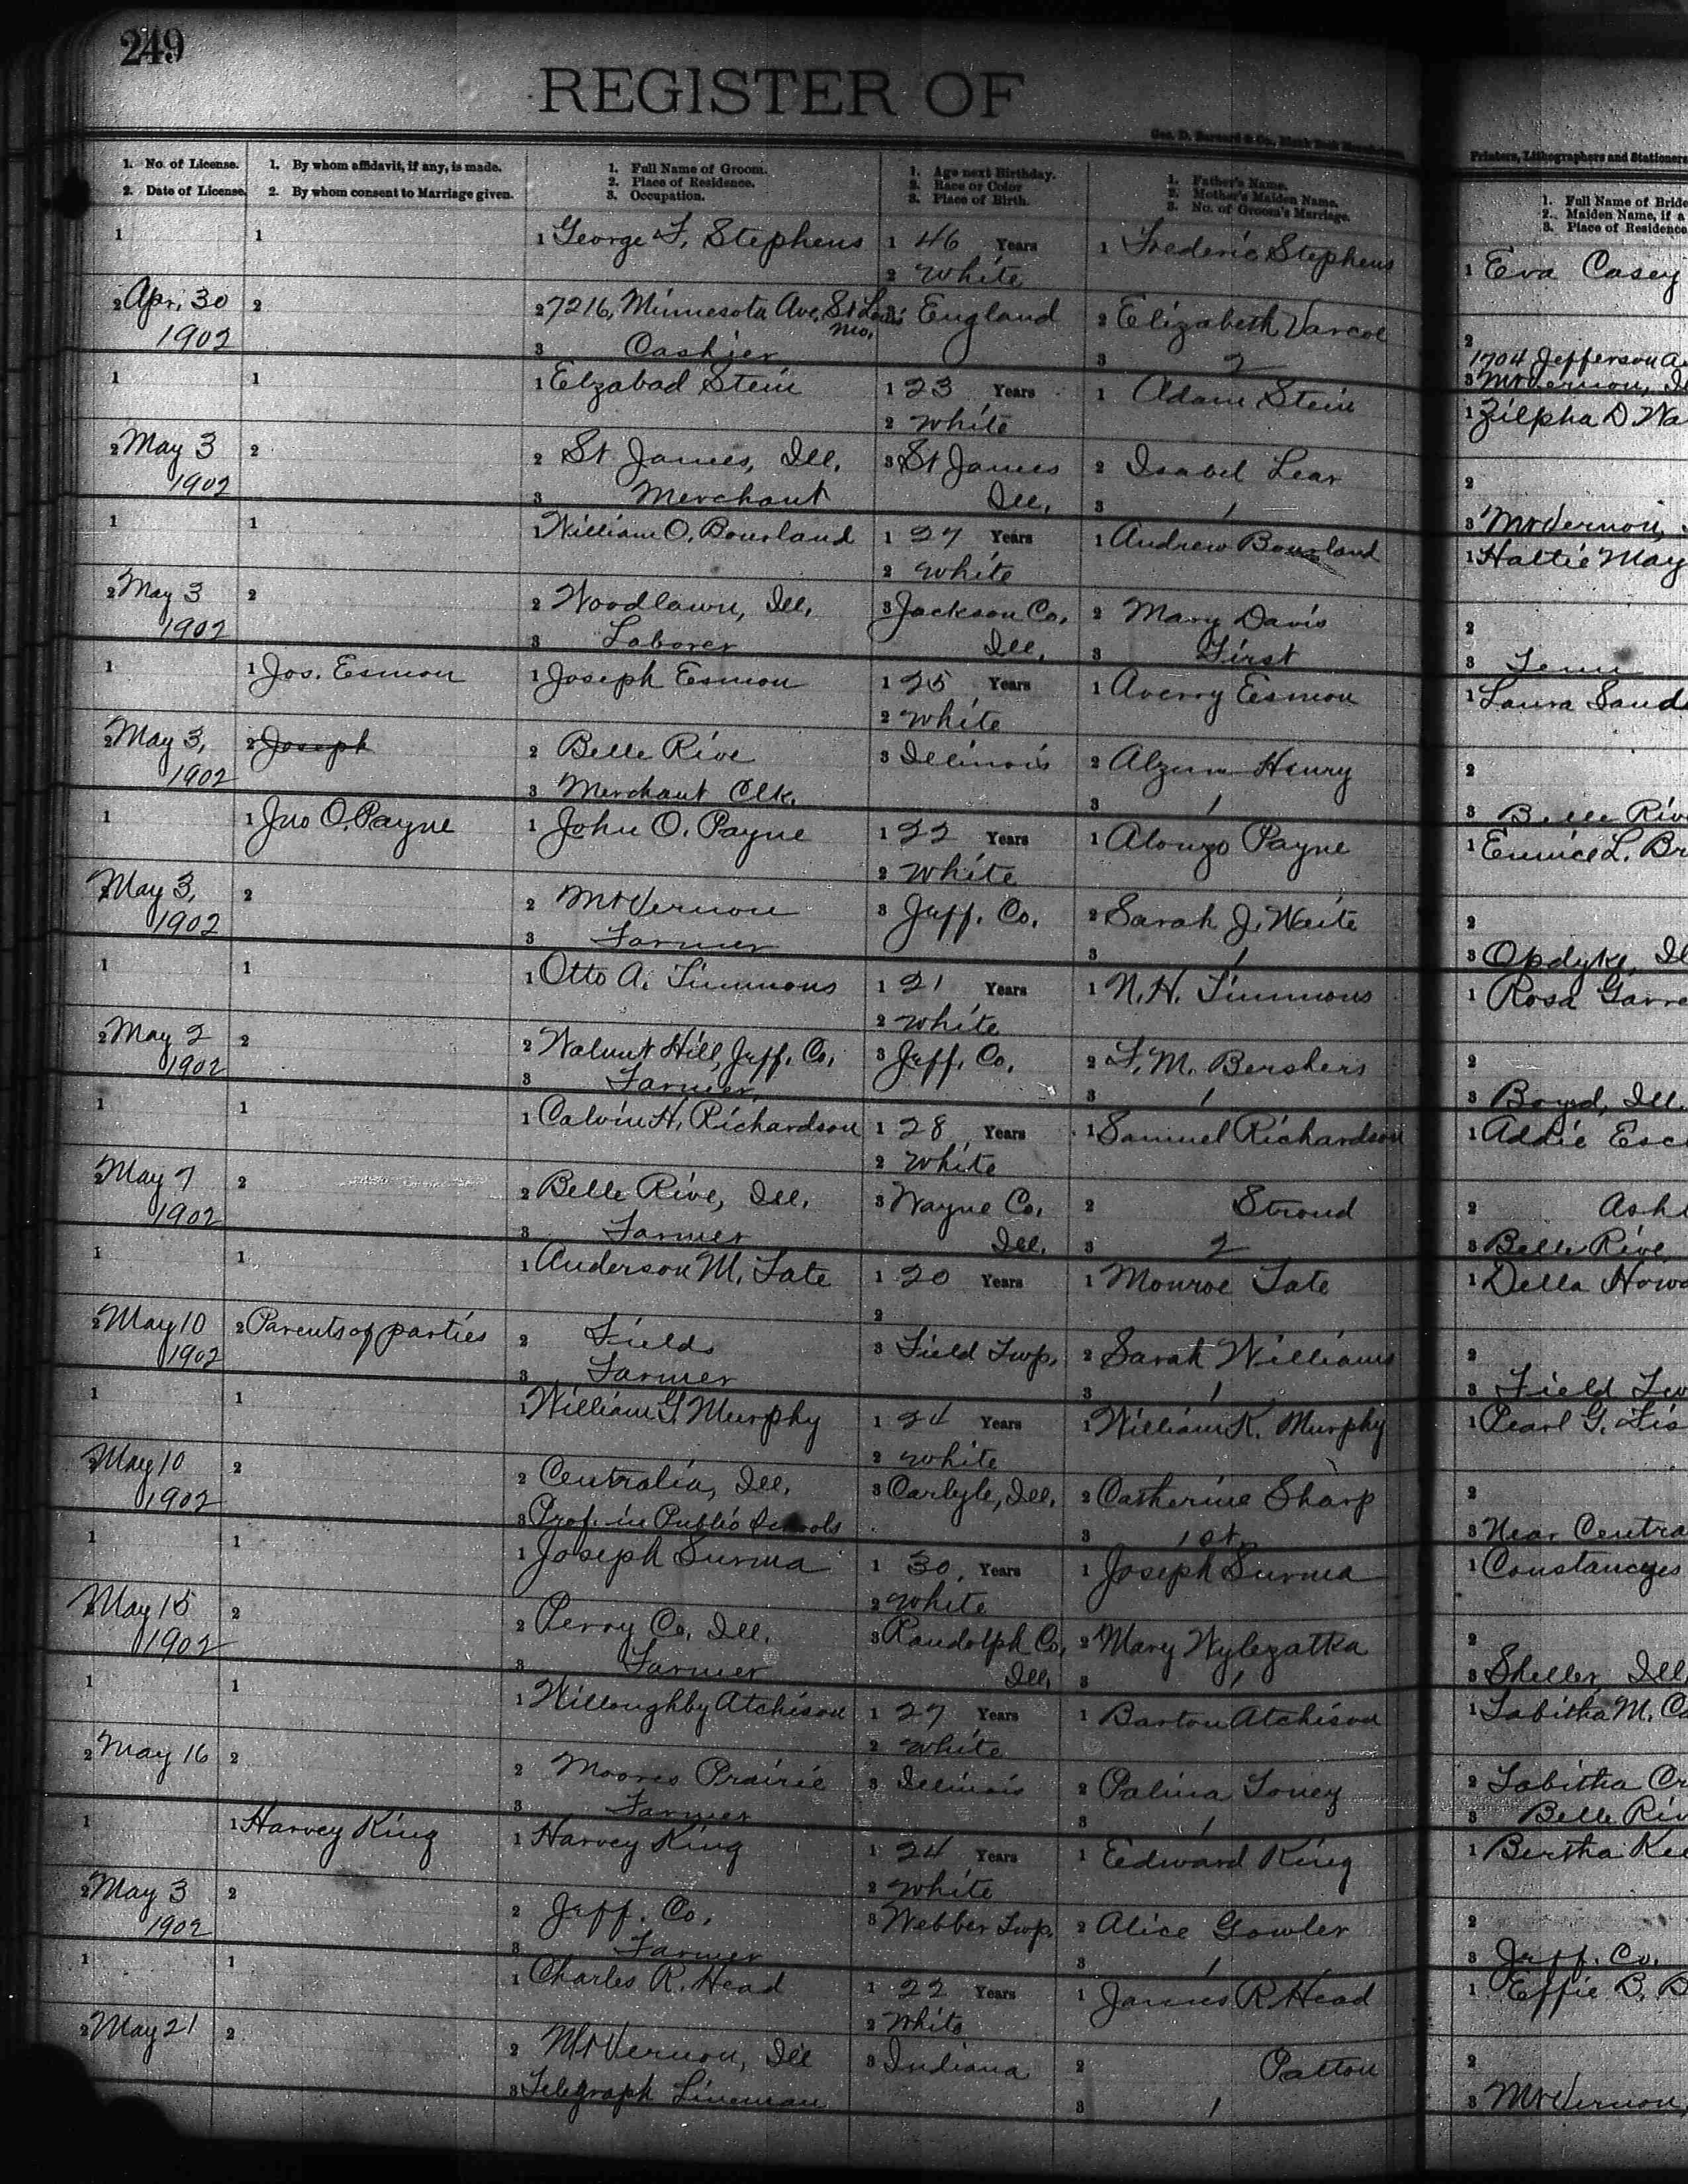 249
REGISTER OF
Geo. D. Barnard & Co., Blank Book
Printers, Lithographers and Stationers
1. No. of License.
2. Date of License.
1. By whom affidavit, if any, is made.
2. By whom consent to Marriage given.
1. Full Name of Groom.
2. Place of Residence.
3. Occupation.
1. Age next Birthday.
2. Race or Color
3. Place of Birth.
1. Father's Name.
2. Mother's Maiden Name.
3. No. of Groom's Marriage.
1. Full Name of Bride
2. Maiden Name, if a
3. Place of Residence
1 1 1 George F. Stephens 1 46 Years 1 Frederic Stephens 1 Eva Casey
2 White
2 Apr. 30 2 2 7216, Minnesota Ave, St Louis 3 England 2 Elizabeth Varcoe 2
1902 Mo. 1704 Jefferson A
3 Cashier 3 2 3 Mt Vernon, Il
1 1 1 Elzabad Stein 1 23 Years 1 Adam Stein 1 Zilpha D Wa
2 White
2 May 3 2 2 St James, Ill. 3 St James 2 Isabel Lear 2
1902 3 Merchant Ill. 3 1 3 Mt Vernon,
1 1 1 William O. Bourland 1 27 Years 1 Andrew Bourland 1 Hattie May
2 White
2 May 3 2 2 Woodlawn, Ill. 3 Jackson Co. 2 Mary Davis 2
1902 3 Laborer Ill. 3 First 3 Tenn
1 1 Jos. Esmon 1 Joseph Esmon 1 25 Years 1 Averry Esmon 1 Laura Sand
2 White
2 May 3, 2 Joseph 2 Belle Rive 3 Illinois 2 Henry 2
1902 3 Merchant Clk. 3 1 3 Belle Riv
1 1 Jno O. Payne 1 John O. Payne 1 22 Years 1 Alonzo Payne 1 Eunice L. Br
2 White
2 May 3, 2 2 Mt Vernon 3 Jeff. Co. 2 Sarah J. Waite 2
1902 3 Farmer 3 1 3 Opdyke, Il
1 1 1 Otto A. Timmons 1 21 Years 1 N. H. Timmons 1 Rosa Garre
2 White
2 May 2 2 2 Walnut Hill, Jeff. Co. 3 Jeff. Co. 2 F. M. Bershers 2
1902 3 Farmer. 3 1 3 Boyd, Ill.
1 1 1 Calvin H. Richardson 1 28 Years 1 Samuel Richardson 1 Addie Esc
2 White
2 May 7 2 2 Belle Rive, Ill. 3 Wayne Co. 2 Stroud 2 Ash
1902 3 Farmer Ill. 3 2 3 Belle Rive
1 1 1 Anderson M. Tate 1 20 Years 1 Monroe Tate 1 Della Howa
2
2 May 10 2 Parents of parties 2 Field 3 Field Twp. 2 Sarah Williams 2
1902 3 Farmer 3 1 3 Field Tw
1 1 1 William G. Murphy 1 24 Years 1 William K. Murphy 1 Pearl G. Fis
2 White
2 May 10 2 2 Centralia, Ill. 3 Carlyle, Ill. 2 Catherine Sharp 2
1902 3 Prof. in Public Schools 3 1st 3 Near Centra
1 1 1 Joseph Surma 1 30 Years 1 Joseph Surma 1
2 White
2 May 15 2 2 Perry Co, Ill. 3 Randolph Co, 2 Mary Wylezatka 2
1902 3 Farmer Ill. 3 1 3 Sheller, Ill
1 1 1 Willoughby Atchison 1 27 Years 1 Barton Atchison 1 Tabitha M. Ca
2 White
2 May 16 2 2 Moores Prairie 3 Illinois 2 Palina Toney 2 Tabitha Cr
3 Farmer 3 1 3 Belle Riv
1 1 Harvey King 1 Harvey King 1 24 Years 1 Edward King 1 Bertha Ke
2 White
2 May 3 2 2 Jeff. Co. 3 Webber Twp. 2 Alice Gowler 2
1902 3 Farmer 3 1 3 Jeff. Co.
1 1 1 Charles R. Head 1 22 Years 1 James R Head 1 Effie B. B
2 White
2 May 21 2 2 Mt Vernon, Ill 3 Indiana 2 Patton 2
3 Telegraph Lineman 3 1 3 Mt Vernon,